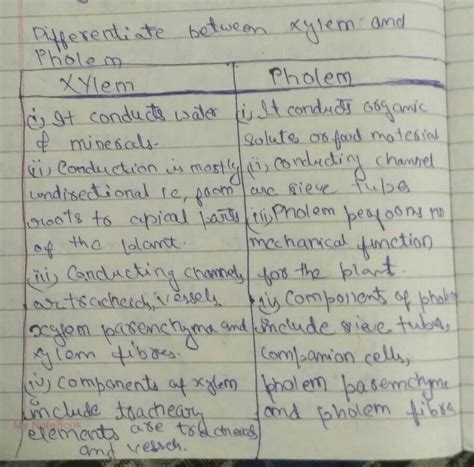 Differentiate between xylem and
Pholem
XYlem
(i) It conducts water
& minerals.
(ii) Conduction is mostly
undirectional i.e, from
roots to apical parts
of the plant.
(iii) Conducting channels
are tracheids, vessels
xylem parenchyma and
xylem fibres.
(iv) Components of xylem
include tracheary
elements are tracheids
and vessels.
Pholem
(i) It conducts organic
solute or food material
(ii) conducting channel
are sieve tubes
(iii) Pholem performs no
mechanical function
for the plant.
(iv) Components of pholem
include sieve tubes,
companion cells,
pholem parenchyma
and pholem fibres